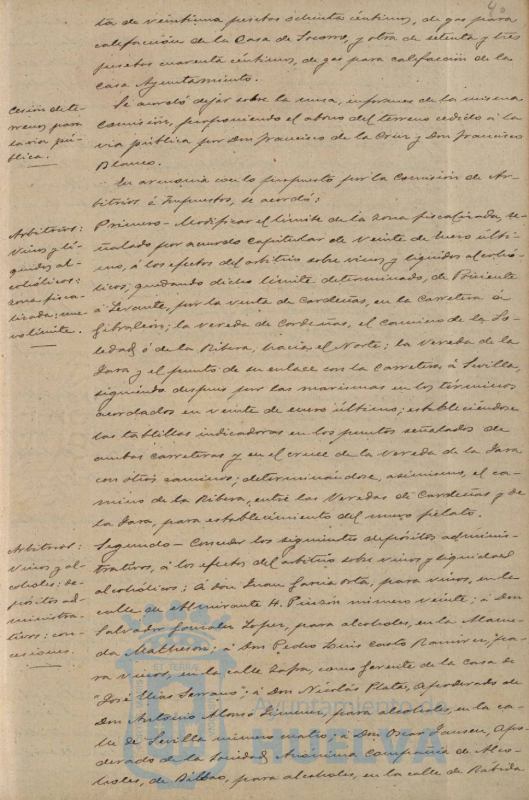 ta de veintiuna pesetas ochenta céntimos, de gas para
calefacción de la Casa de Socorro, y otra de setenta y tres
pesetas cuarenta céntimos, de gas para calefacción de la
Casa Ayuntamiento.
Cesión de te-
rrenos para
la vía pú-
blica.
Se acordó dejar sobre la mesa, informes de la misma
Comisión, proponiendo el abono del terreno cedido a la
vía pública por Don Francisco de la Cruz y Don Francisco
Blanco.
En armonía con lo propuesto por la Comisión de Ar-
bitrios é Impuestos, se acordó:
Arbitrios:
Vinos y lí-
quidos al-
cohólicos:
zona fisca-
lizada: nue-
vo límite.
Primero- Modificar el límite de la zona fiscalizada, se-
ñalado por acuerdo capitular de veinte de Enero últi-
mo, á los efectos del arbitrio sobre vinos y líquidos alcohó-
licos, quedando dicho límite determinado, de Poniente
á Levante, por la venta de Cardeñas, en la Carretera á
Gibraleón; la vereda de Cardeñas, el camino de la So-
ledad ó de la Ribera, hacia el Norte; la Vereda de la
Jara y el punto de su enlace con la Carretera á Sevilla,
siguiendo después por las marismas en los términos
acordados en veinte de enero último; estableciéndose
las tablillas indicadoras en los puntos señalados de
ambas carreteras y en el cruce de la Vereda de la Jara
con otros caminos; determinándose, asimismo, el ca-
mino de la Ribera, entre las Veredas de Cardeñas y de
la Jara, para establecimiento del nuevo fielato.
Arbitrios:
Vinos y al-
coholes: de-
pósitos ad-
ministra-
tivos: con-
cesiones.
Segundo- Conceder los siguientes depósitos adminis-
trativos, á los efectos del arbitrio sobre vinos y líquidos
alcohólicos; á don Juan García Orta, para vinos, en la
calle de Almirante H. Pinzón número veinte; á Don
Salvador González López, para alcoholes, en la Alame-
da Matheson; á Don Pedro Luis Casto Ramírez, pa-
ra vinos, en la calle Zafra, como Gerente de la Casa de
"José Elías Serrano"; á Don Nicolás Plata, Apoderado de
Don Antonio Alonso Jiménez, para alcoholes, en la ca-
lle de Sevilla número cuatro; á Don Oscar Jansen, Apo-
derado de la Sociedad Anónima Compañía de Alco-
holes, de Bilbao, para alcoholes, en la calle de Rábida
ET TERRAE
Ayuntamiento de
HUELVA